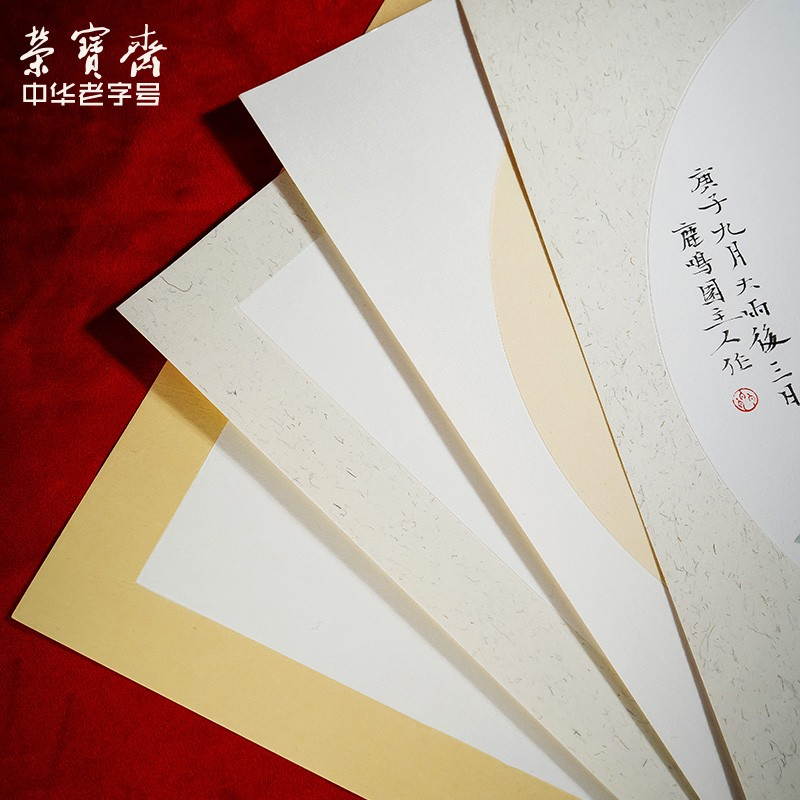 榮寶齋
中华老字号
庚子九月大雨後三月
鹿鳴園主人作